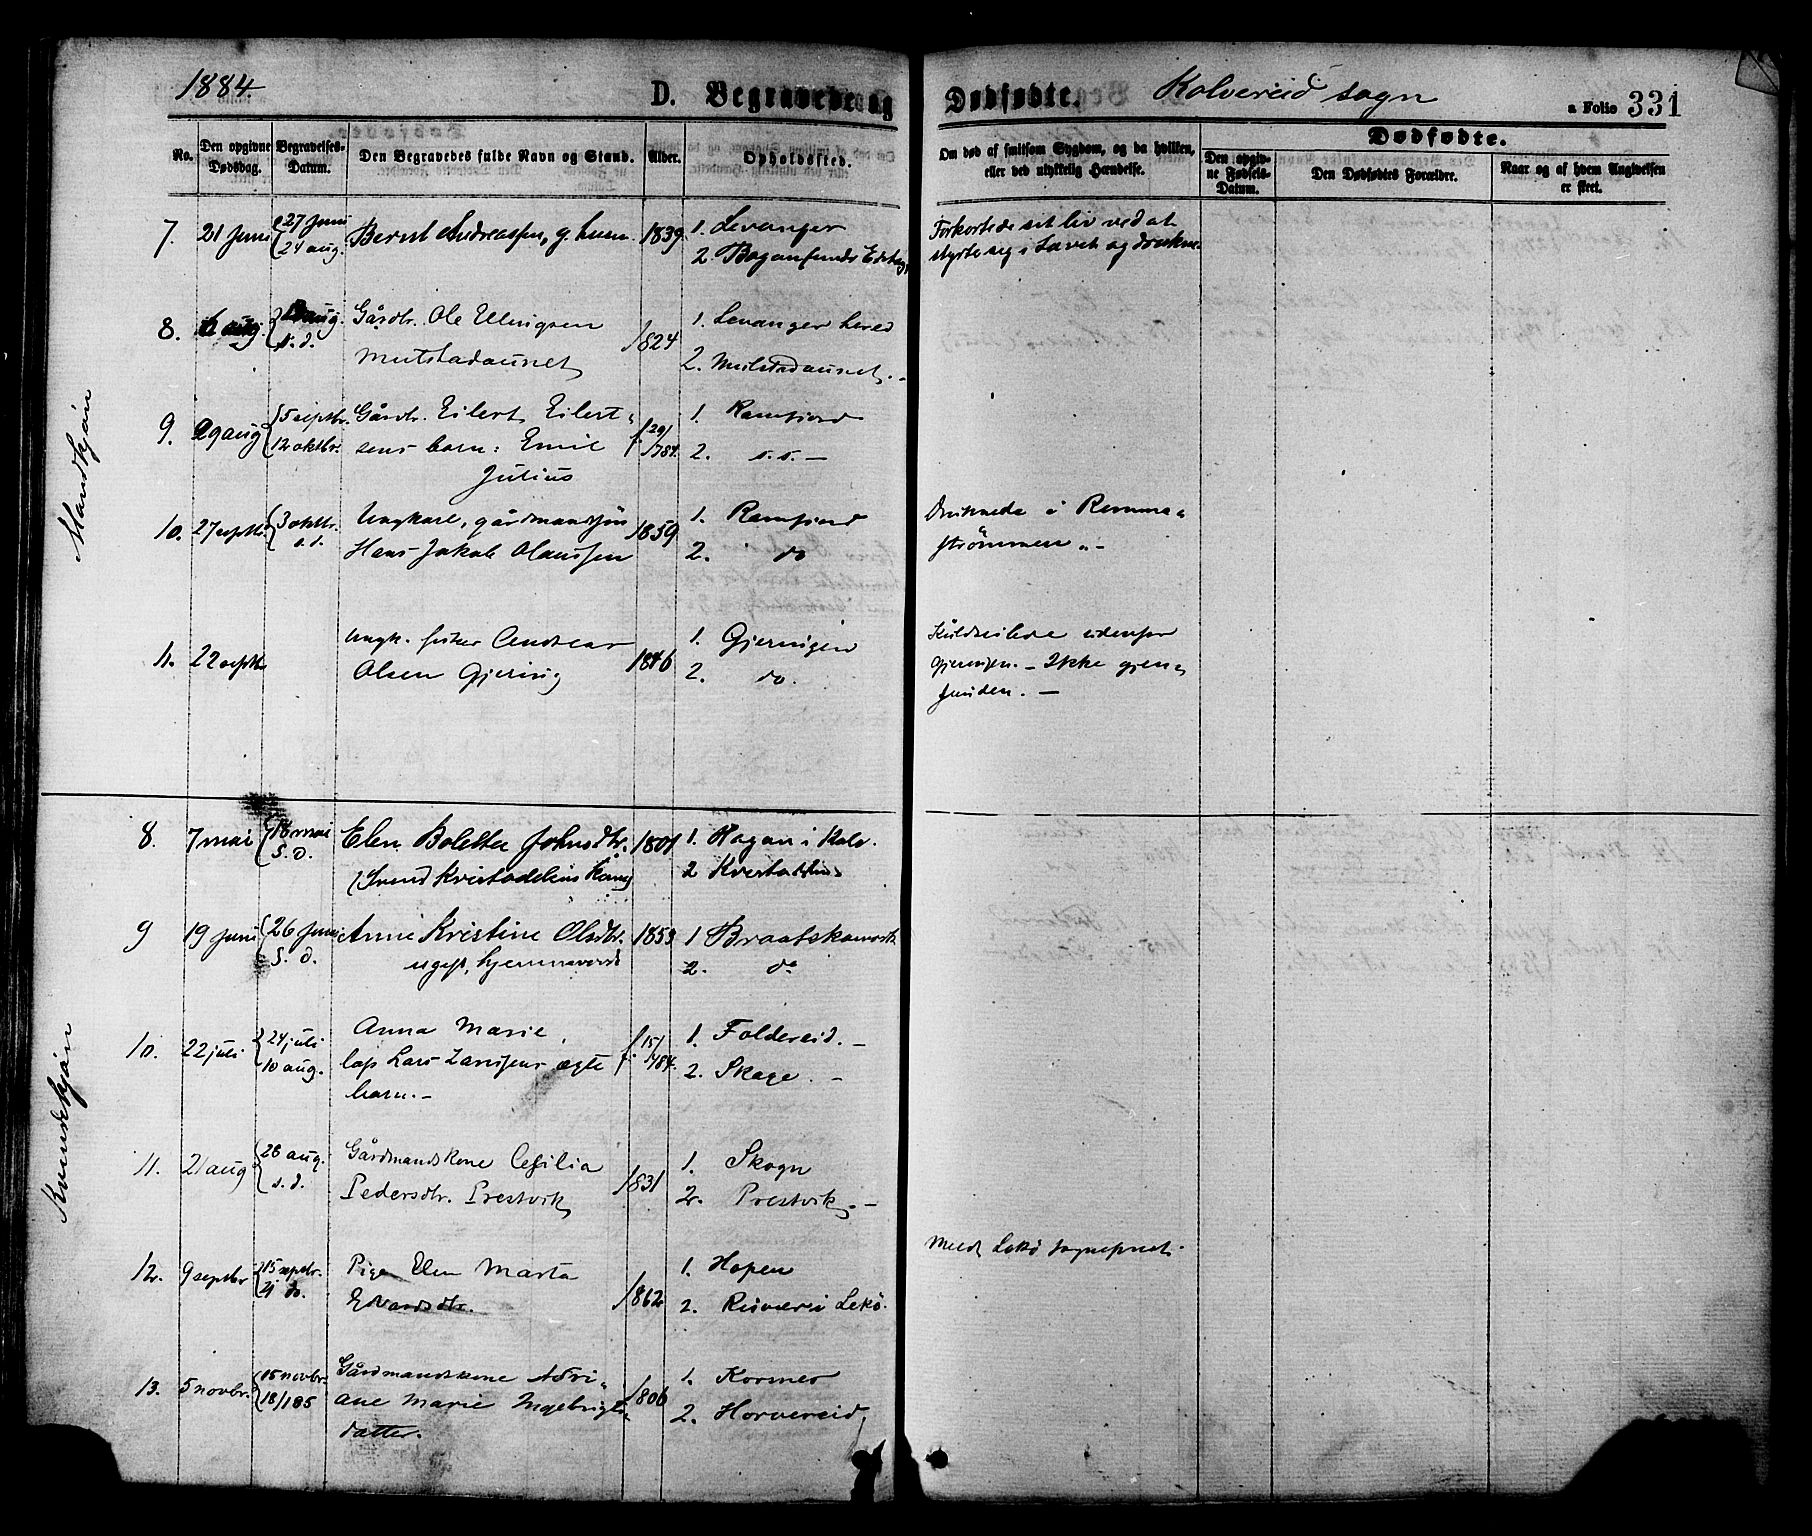 1884.
D. Begravede og Dødfødte.
Kolvereid sogn
a Folio 331
No.
Den opgivne Dødsdag.
Begravelses-Datum.
Den Begravedes fulde Navn og Stand.
Alder.
Opholdssted.
Om død af smitsom Sygdom, og da hvilken, eller ved ulykkelig Hændelse.
Dødfødte.
Den opgivne Fødsels-Datum.
Den Dødfødtes Forældre.
Naar og af hvem Angivelsen er skeet.
Mandkjøn
7. 21 juni 27 juni Bernt Andreassen, g. 1839 1. Levanger Forkortede sit liv ved at
24 aug. 2. styrte sig i Søen og drukne
8. aug. aug. Gårdbr. Ole Ellingsen 1824 1. Levanger
s. d. Mulstadaunet 2. Mulstadaunet. -
9. 29 aug 5 septbr. Gårdbr. Eilert Eilert- f. 29/7 84. 1. Ramfjord
12 oktbr. sens barn: Emil 2. s. s. -
Julius
10. 27 septbr. 3 oktbr. Ungkarl, gårdmandssøn 1859 1. Ramfjord Druknede i Remma-
s. d. Hans Jakob Olaussen 2. do strömmen. -
11. 22 septbr. ungk. fisker Andreas 1846 1. Gjeringen Kuldseilede udenfor
Olsen Gjering 2. do. Gjeringen. - Ikke gjen-
funden. -
Kvindekjøn
8. 7 mai 18 mai Elen Boletta Johnsdtr. 1801 1. Hagan i Kolv.
s. d. 2
9 19 juni 26 juni Anne Kristine Olsdtr. 1853 1
s. d. ugift, hjemmeværende 2. do
10. 22 juli 24 juli Anna Marie, f. 15/7 84. 1. Foldereid. -
10 aug. lap Lars Larssens ægte 2. Skage. -
barn. -
11. 21 aug 28 aug. Gårdmandskone Cesilia 1831 1. Skogn
s. d. Pedersdtr. Prestvik 2. Prestvik. -
12. 9 septbr 15 septbr. Pige Elen Marta 1862 1. Hopen Meldt Lekö sogneprest.
21 do. Edvardsdtr. 2. Risvær i Lekö.
13. 5 novbr. 15 novbr. Gårdmandskone Adri- 1806 1. Kornes
18/1 85 ane Marie Ingebrigts- 2. Horvereid
datter.